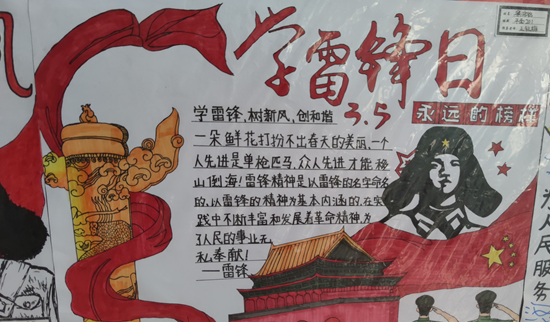 学雷锋日
3.5
永远的榜样
学雷锋,树新风,创和谐
一朵鲜花打扮不出春天的美丽,一个
人先进是单枪匹马,众人先进才能移
山倒海!雷锋精神是以雷锋的名字命名
的、以雷锋的精神为基本内涵的、在实
践中不断丰富和发展着革命精神,为
了人民的事业无
私奉献!
——雷锋
人民服务